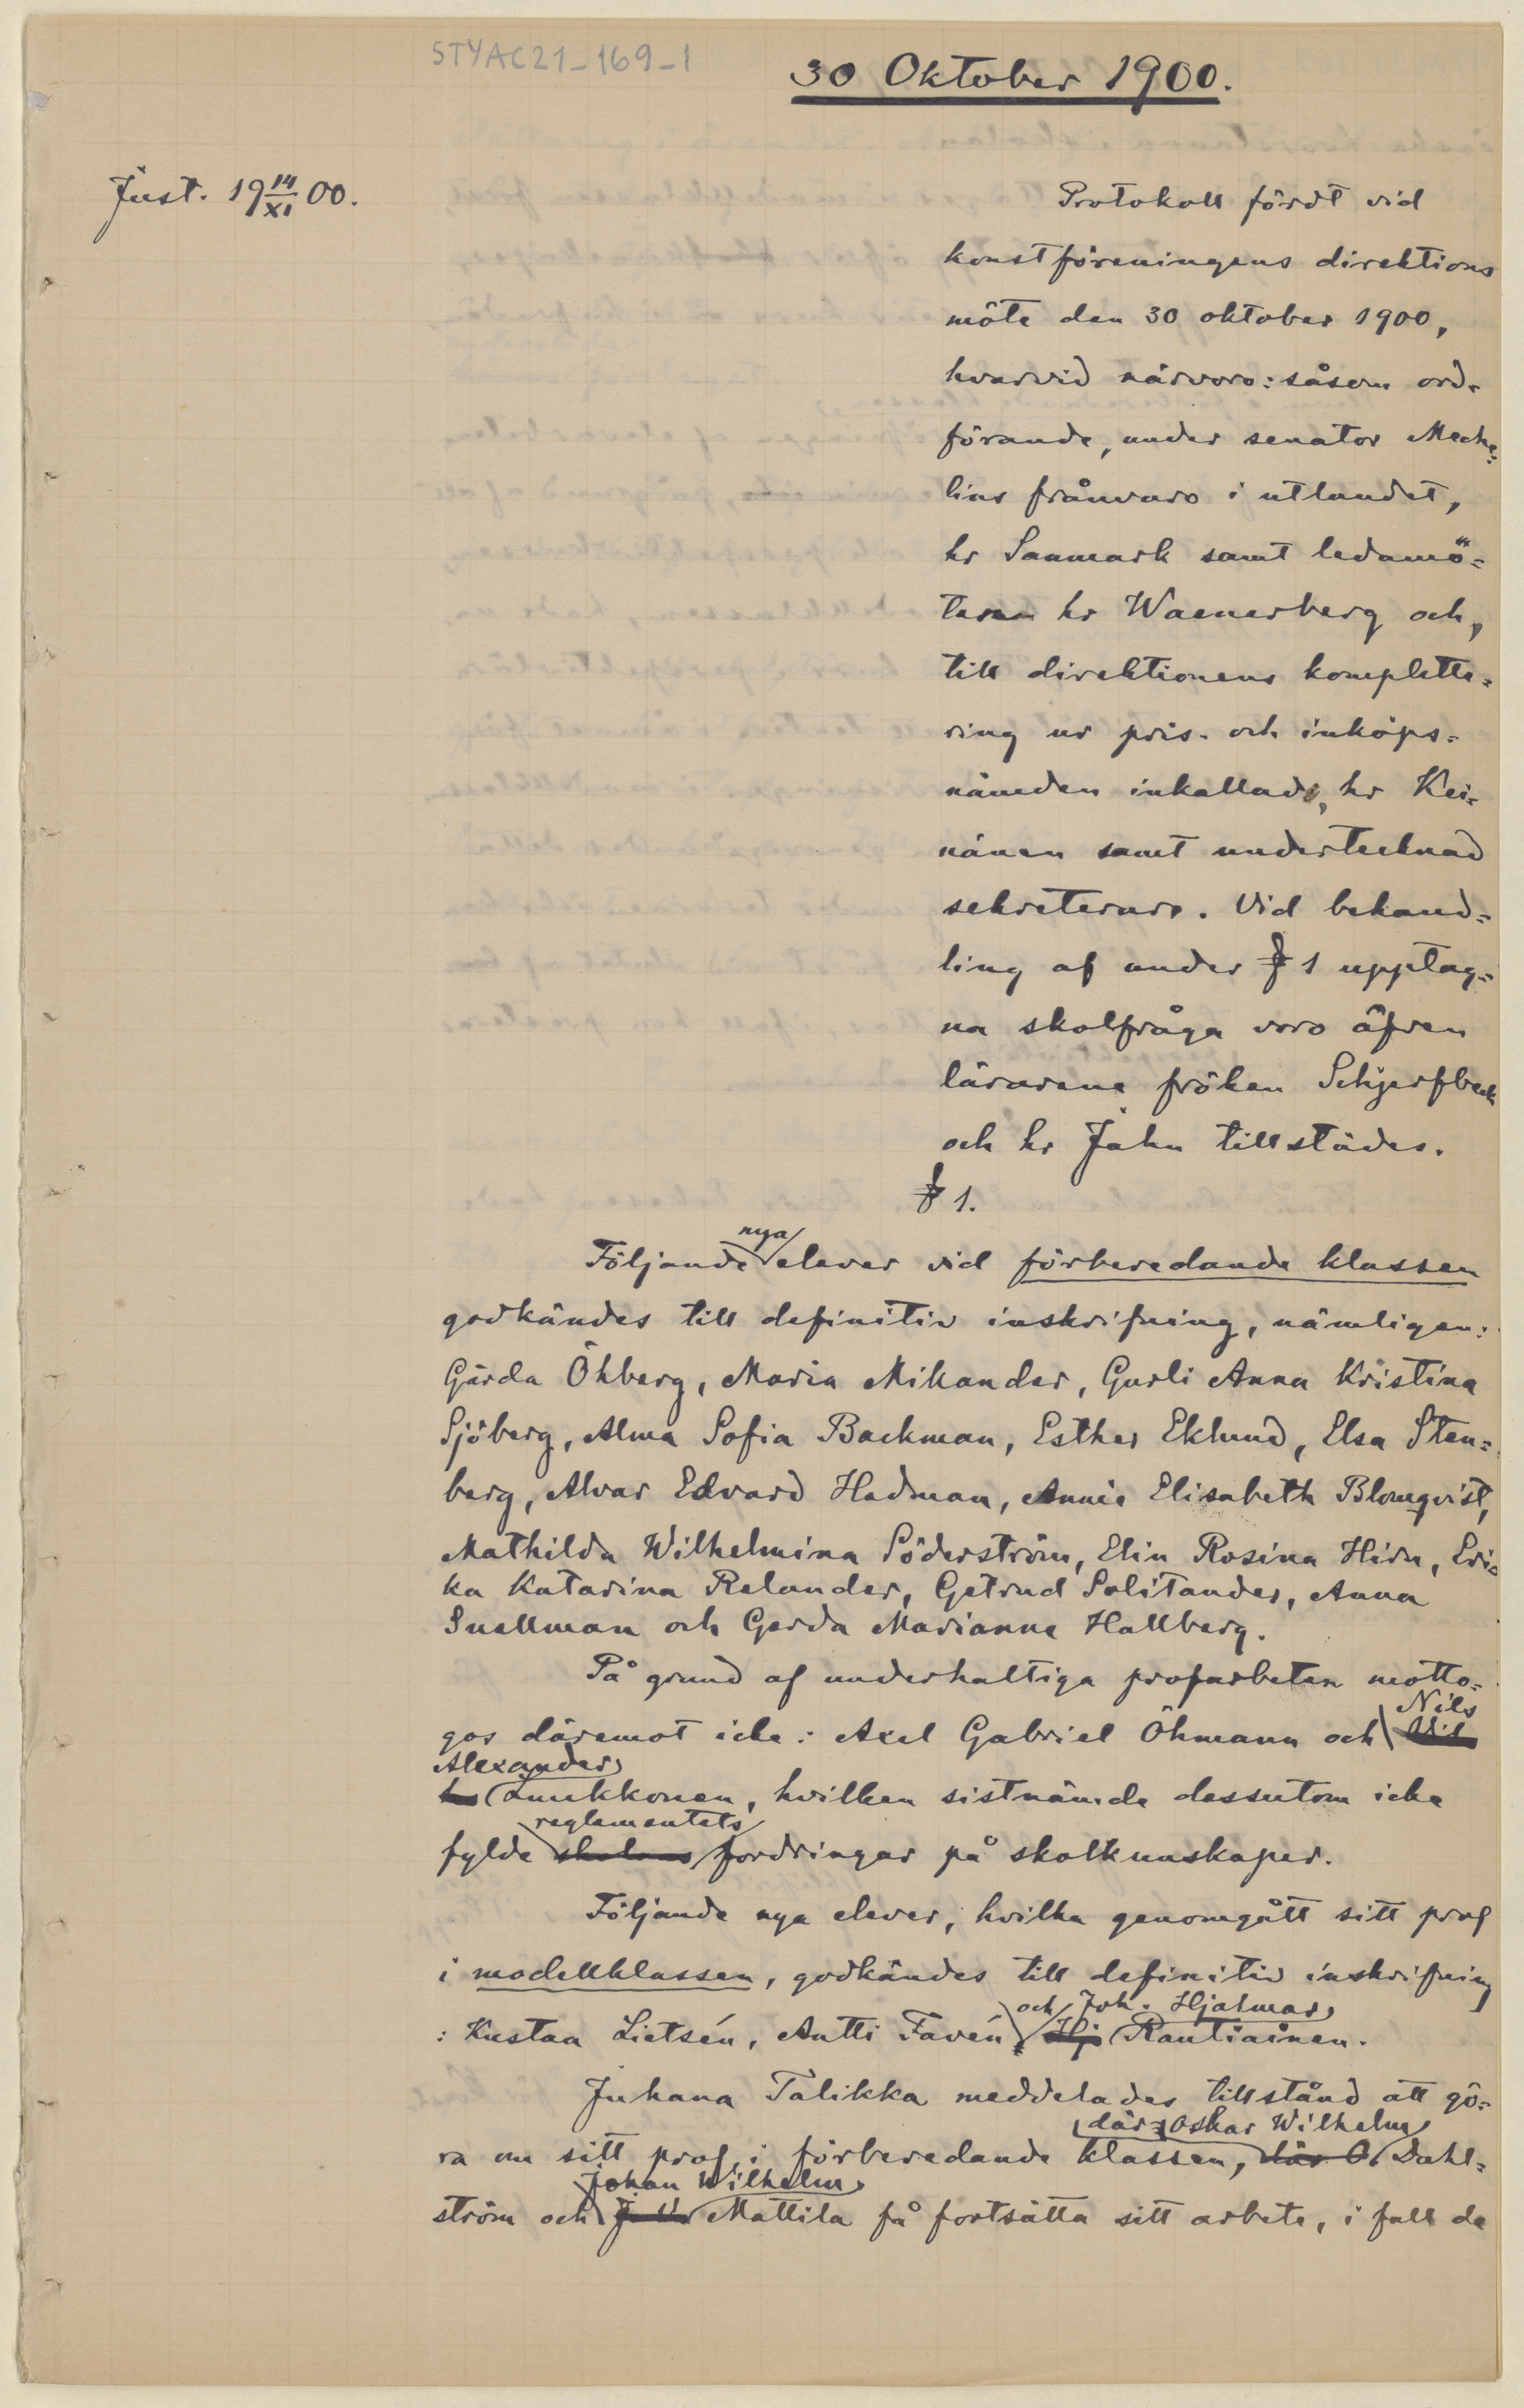 STYAC21_169_1
30 Oktober 1900.
Just. 19 14/XI 00.
Protokoll fördt vid
konstföreningens direktions
möte den 30 oktober 1900,
hvarvid närvoro: såsom ord-
förande, under senator Meche=
lins frånvaro i utlandet,
hr Sanmark samt ledamö=
teren hr Waenerberg och,
till direktionens komplette=
ring ur pris- och inköps=
nämden inkallad, hr Kei=
nänen samt undertecknad
sekreterare. Vid behand=
ling af under § 1 upptag=
na skolfråga voro äfven
lärarene fröken Schjerfbeck
och hr Jahn tillstädes.
§ 1.
nya
Följande elever vid förberedande klassen
godkändes till definitiv inskrifning, nämligen:
Gärda Öhberg, Maria Mikander, Gurli Anna Kristina
Sjöberg, Alma Sofia Backman, Esther Eklund, Elsa Sten=
berg, Alvar Edvard Hedman, Annie Elisabeth Blomqvist,
Mathilda Wilhelmina Söderström, Elin Rosina Hirn, Eri=
ka Katarina Relander, Getrud Solitander, Anna
Snellman och Gerda Marianne Hallberg.
På grund af underhaltiga profarbeten motto=
Nils
gos däremot icke: Axel Gabriel Öhmann och Vil
Alexander
h Luukkonen, hvilken sistnämde dessutom icke
reglementets
fylde skolans fordringar på skolkunskaper.
Följande nya elever, hvilka genomgått sitt prof
i modellklassen, godkändes till definitiv inskrifning
och Joh. Hjalmar
: Kustaa Lietsén, Antti Favén, Hj Rautiainen.
Juhana Talikka meddelades tillstånd att gö=
där= Oskar Wilhelm
ra om sitt prof i förberedande klassen, där O. Dahl=
Johan Wilhelm
ström och J. V. Mattila få fortsätta sitt arbete, i fall de